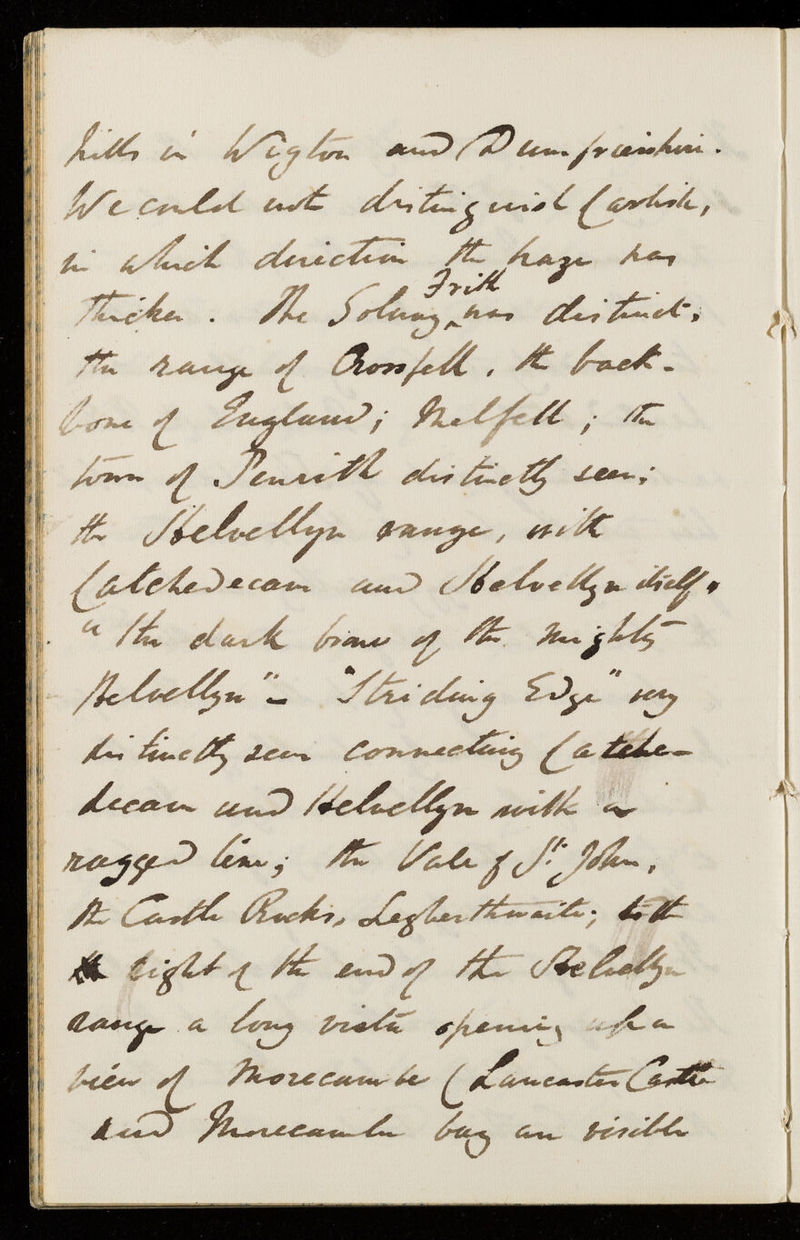 hills in Wigton and Dumfriesshire.
We could not distinguish Carlisle,
in which direction the haze was
thicker. The Solway Frith was distinct;
the range of Crossfell, the back-
bone of England; Melfell; the
town of Penrith distinctly seen;
the Helvellyn range, with
Catchedecam and Helvellyn itself,
"the dark brow of the mighty
Helvellyn" - "Striding Edge" very
distinctly seen connecting Catche-
decam and Helvellyn with a
ragged line; the Vale of St. John,
the Castle Rocks, Legberthwaite; to the
right of the end of the Helvellyn
range a long vista opening up a
view of Morecambe (Lancaster Castle
and Morecambe bay are visible